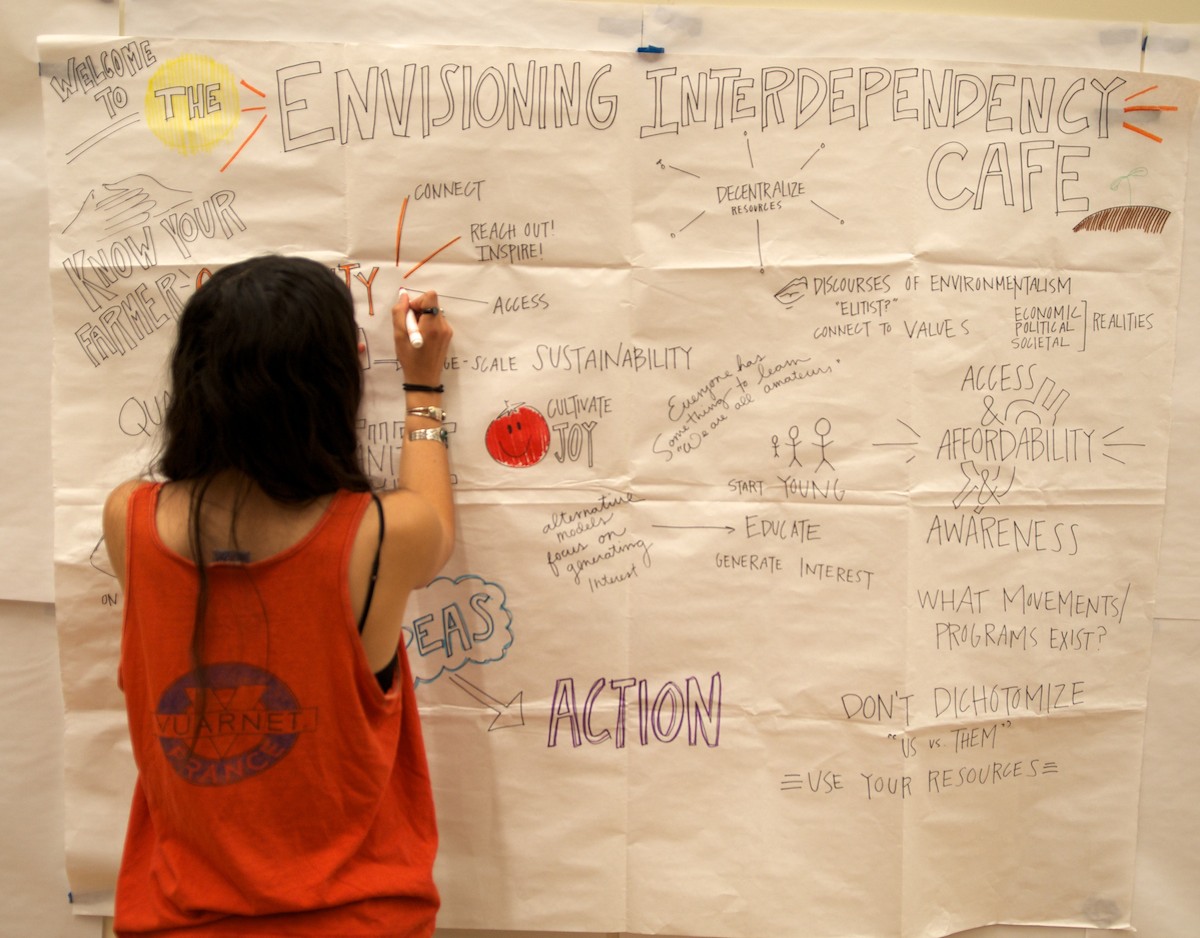 WELCOME
TO
THE
ENVISIONING INTERDEPENDENCY
CAFE
KNOW YOUR
FARMER
CONNECT
REACH OUT!
INSPIRE!
ACCESS
DECENTRALIZE
RESOURCES
DISCOURSES OF ENVIRONMENTALISM
"ELITIST?"
CONNECT TO VALUES
ECONOMIC
POLITICAL
SOCIETAL
REALITIES
-SCALE SUSTAINABILITY
CULTIVATE
JOY
Everyone has
something to learn
"We are all amateurs"
START YOUNG
ACCESS
&
AFFORDABILITY
&
AWARENESS
alternative
models
focus on
generating
interest
EDUCATE
GENERATE INTEREST
WHAT MOVEMENTS/
PROGRAMS EXIST?
DEAS
ACTION
DON'T DICHOTOMIZE
"US vs. THEM"
USE YOUR RESOURCES
ON
VUARNET
FRANCE